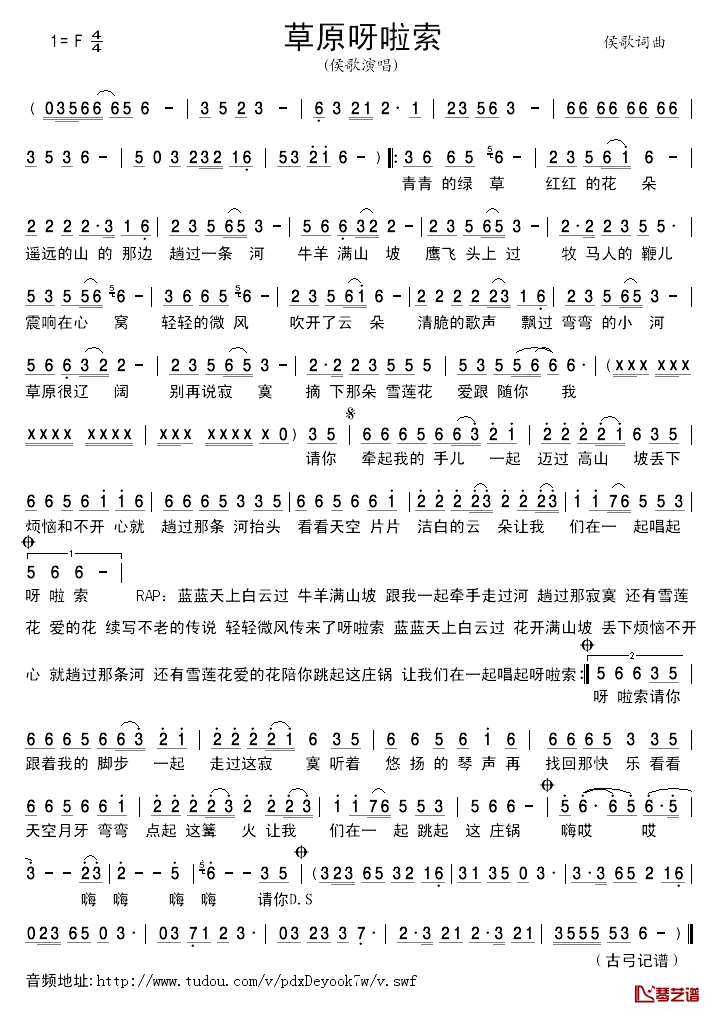 草原呀啦索
1= F 4/4
侯歌词曲
(侯歌演唱)
( 03566 65 6 - | 3 5 2 3 - | 6 3 21 2· 1 | 2 3 5 6 3 - | 66 66 66 66 |
3 5 3 6 - | 5 0 3 232 16 | 53 21 6 - ) ‖: 3 6 6 5 5 6 - | 2 3 5 6 1 6 - |
青青 的绿 草 红红 的花 朵
2 2 2 2·3 1 6 | 2 3 5 65 3 - | 5 6 6 32 2 - | 2 3 5 65 3 - | 2·2 2 3 5 5· |
遥远的山 的 那边 趟过一条 河 牛羊 满山 坡 鹰飞 头上 过 牧 马人的 鞭儿
5 3 5 56 5 6 - | 3 6 6 5 5 6 - | 2 3 5 61 6 - | 2 2 2 2 23 1 6 | 2 3 5 65 3 - |
震响在心 窝 轻轻的微 风 吹开了云 朵 清脆的歌声 飘过 弯弯 的小 河
5 6 6 32 2 - | 2 3 5 65 3 - | 2·2 2 3 5 5 5 | 5 3 5 56 6 6· | (x x x x x x x x
草原很辽 阔 别再说寂 寞 摘 下那朵 雪莲花 爱跟 随你 我
x x x x x x x x | x x x x x x x x x 0 ) 3 5 | 6 6 6 5 6 63 2 1 | 2 2 2 21 6 3 5 |
请你 牵起我的 手儿 一起 迈过 高山 坡丢下
6 6 5 6 1 1 6 | 6 6 5 6 3 3 5 | 6 6 5 6 6 1 | 2 2 2 23 2 23 | 1 1 76 5 5 3 |
烦恼和不开 心就 趟过那条 河抬头 看看天空 片片 洁白的云 朵让我 们在一 起唱起
1
5 6 6 - |
呀 啦 索 RAP: 蓝蓝天上白云过 牛羊满山坡 跟我一起牵手走过河 趟过那寂寞 还有雪莲
花 爱的花 续写不老的传说 轻轻微风传来了呀啦索 蓝蓝天上白云过 花开满山坡 丢下烦恼不开
2
心 就趟过那条河 还有雪莲花爱的花陪你跳起这庄锅 让我们在一起唱起呀啦索:‖ 5 6 6 3 5 |
呀 啦索请你
6 6 6 5 6 63 2 1 | 2 2 2 21 6 3 5 | 6 6 5 6 1 6 | 6 6 5 6 3 3 5 |
跟着我的 脚步 一起 走过这寂 寞听着 悠 扬的 琴声再 找回那快 乐看看
6 6 5 6 6 1 | 2 2 2 23 2 23 | 1 1 76 5 5 3 | 5 6 6 - | 5 6·6 5 6·5 |
天空月牙 弯弯 点起 这篝 火 让我 们在一 起 跳起 这 庄锅 嗨哎 哎
3 - - 23 | 2 - - 5 | 5 6 - - 3 5 | (323 65 32 16 | 31 35 0 3· | 3·3 65 2 16 |
嗨 嗨 嗨 嗨 请你D.S
023 65 0 3· | 03 71 2 3 - | 023 23 3 7· | 2·3 21 2·3 21 | 3555 53 6 - ) ‖
(古弓记谱)
音频地址:http://www.tudou.com/v/pdxDeyook7w/v.swf
琴艺谱